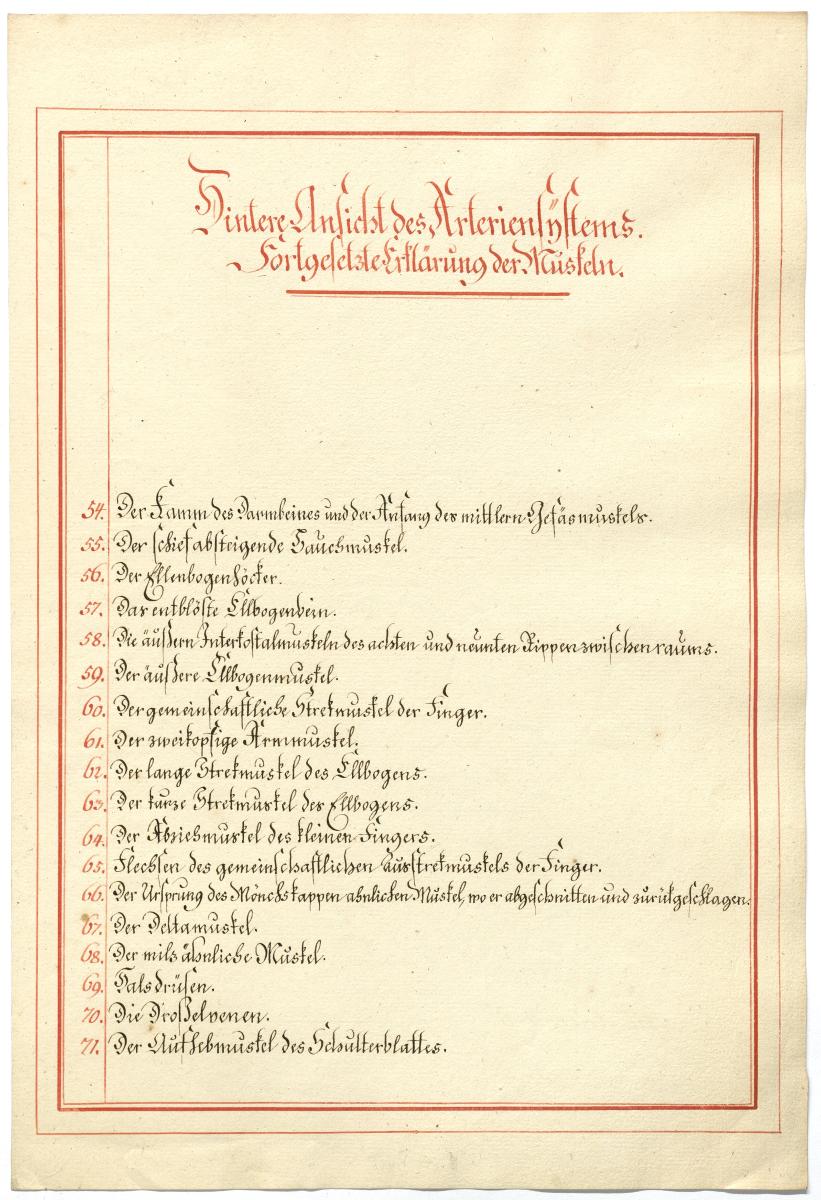 Hintere Ansicht des Arteriensÿstems.
Fortgesetzte Erklärung der Muskeln.
54. Der Kamm des Darmbeines und der Anfang des mittlern Gefäsmuskels.
55. Der schief absteigende Bauchmuskel.
56. Der Ellenbogenhöcker.
57. Das entblöste Ellbogenbein.
58. Die äußern Interkostalmuskeln des achten und neunten Rippenzwischenraums.
59. Der äußere Ellbogenmuskel.
60. Der gemeinschaftliche Strekmuskel der Finger.
61. Der zweikopfige Armmuskel.
62. Der lange Strekmuskel des Ellbogens.
63. Der kurze Strekmuskel des Ellbogens.
64. Der Abziehmuskel des kleinen Fingers.
65. Flechsen des gemeinschaftlichen Ausstrekmuskels der Finger.
66. Der Ursprung des Mönchskappen ahnlichen Muskel, wo er abgeschnitten und zurükgeschlagen.
67. Der Deltamuskel.
68. Der milz ähnliche Muskel.
69. Halsdrüsen.
70. Die Droßelvenen.
71. Der Aufhebmuskel des Schulterblattes.